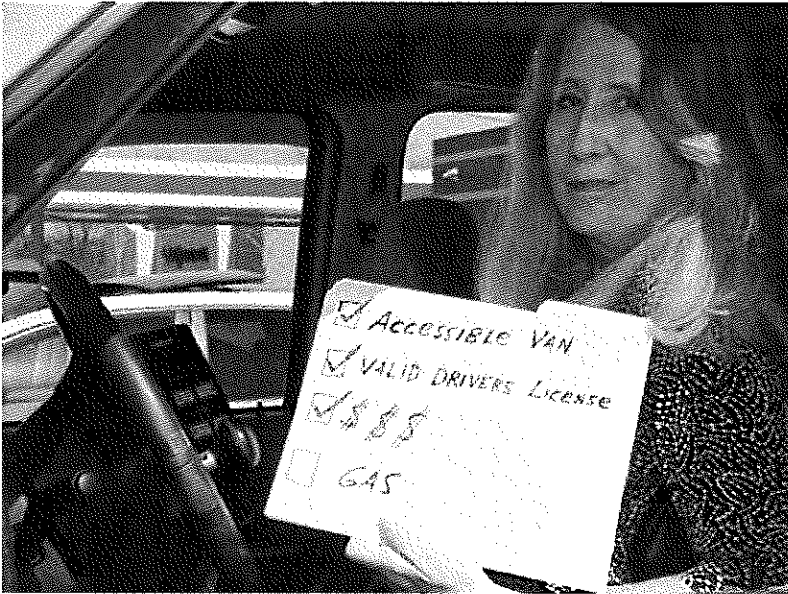 ☑ ACCESSIBLE VAN
☑ VALID DRIVERS LICENSE
☑ $ $ $
☐ GAS